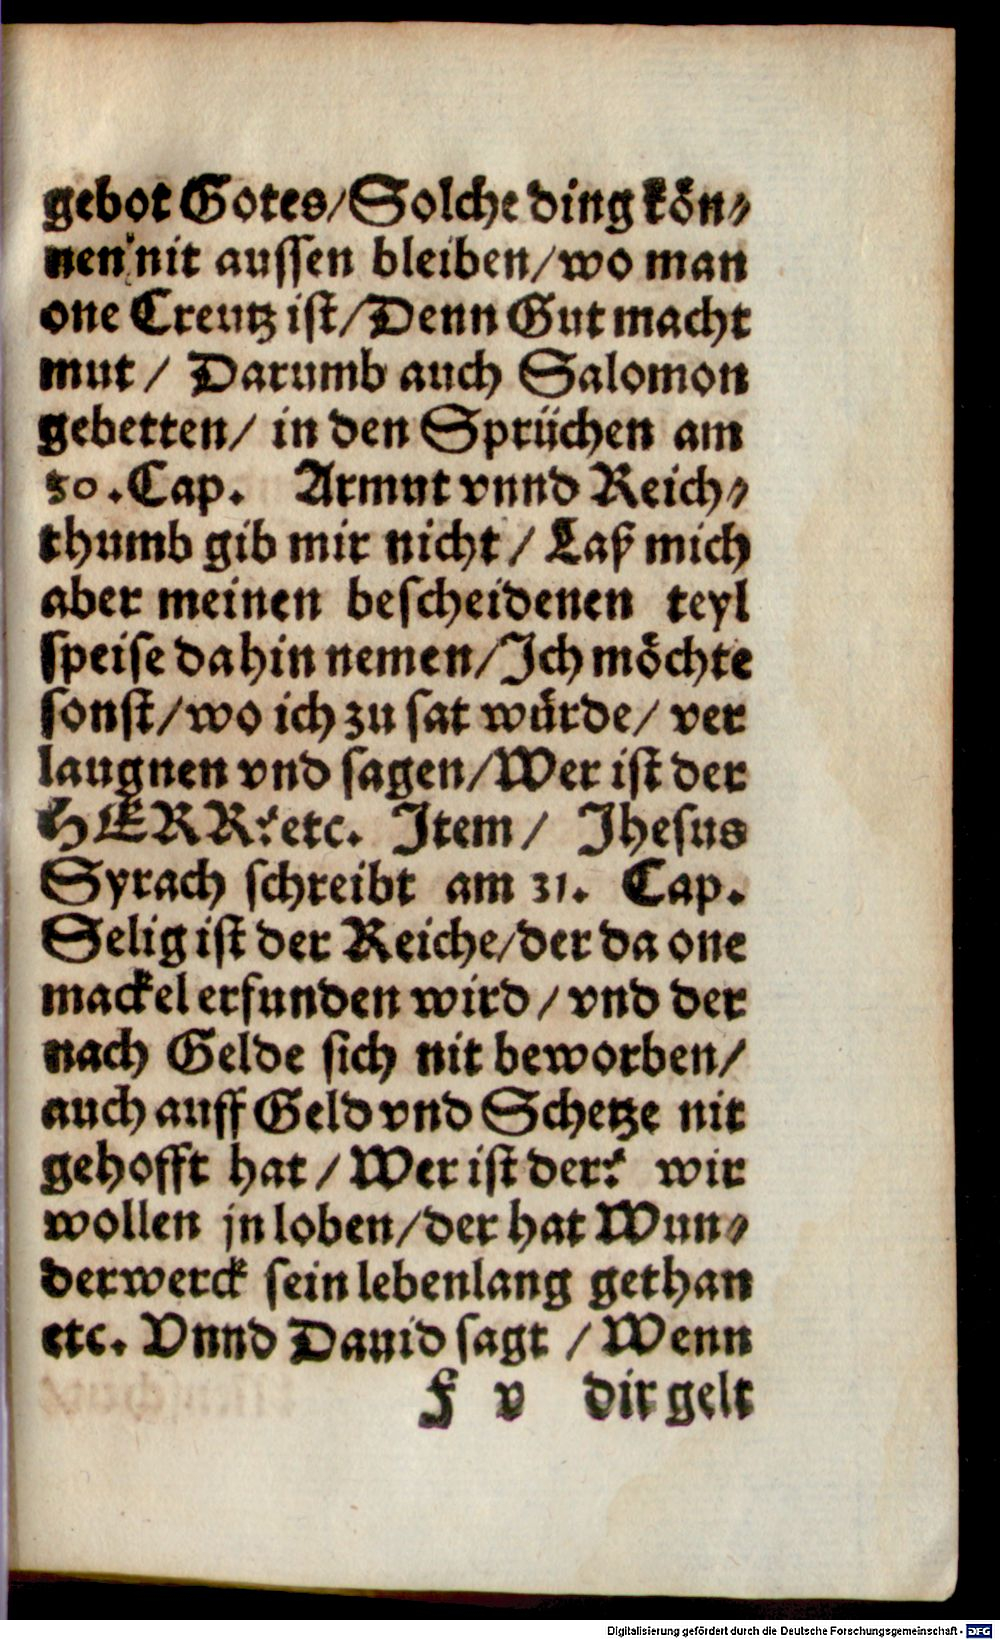 gebot Gotes/Solche ding kön⸗
nen nit aussen bleiben/wo man
one Creutz ist/Denn Gut macht
mut / Darumb auch Salomon
gebetten/ in den Sprüchen am
30. Cap. Armut vnnd Reich⸗
thumb gib mir nicht / Laß mich
aber meinen bescheidenen teyl
speise dahin nemen/Ich möchte
sonst/wo ich zu sat würde/ ver
laugnen vnd sagen/Wer ist der
HERR? etc. Item / Jhesus
Syrach schreibt am 31. Cap.
Selig ist der Reiche/der da one
mackel erfunden wird / vnd der
nach Gelde sich nit beworben/
auch auff Geld vnd Schetze nit
gehofft hat / Wer ist der? wir
wollen jn loben/der hat Wun⸗
derwerck sein lebenlang gethan
etc. Vnnd Dauid sagt / Wenn
F v dir gelt
Digitalisierung gefördert durch die Deutsche Forschungsgemeinschaft - DFG